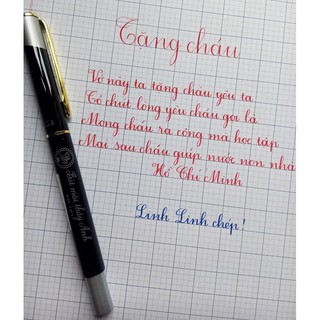 Tặng cháu
Vở này ta tặng cháu yêu ta
Tỏ chút lòng yêu cháu gọi là
Mong cháu ra công mà học tập
Mai sau cháu giúp nước non nhà
Hồ Chí Minh
Linh Linh chép!
Bút mài thầy Ánh